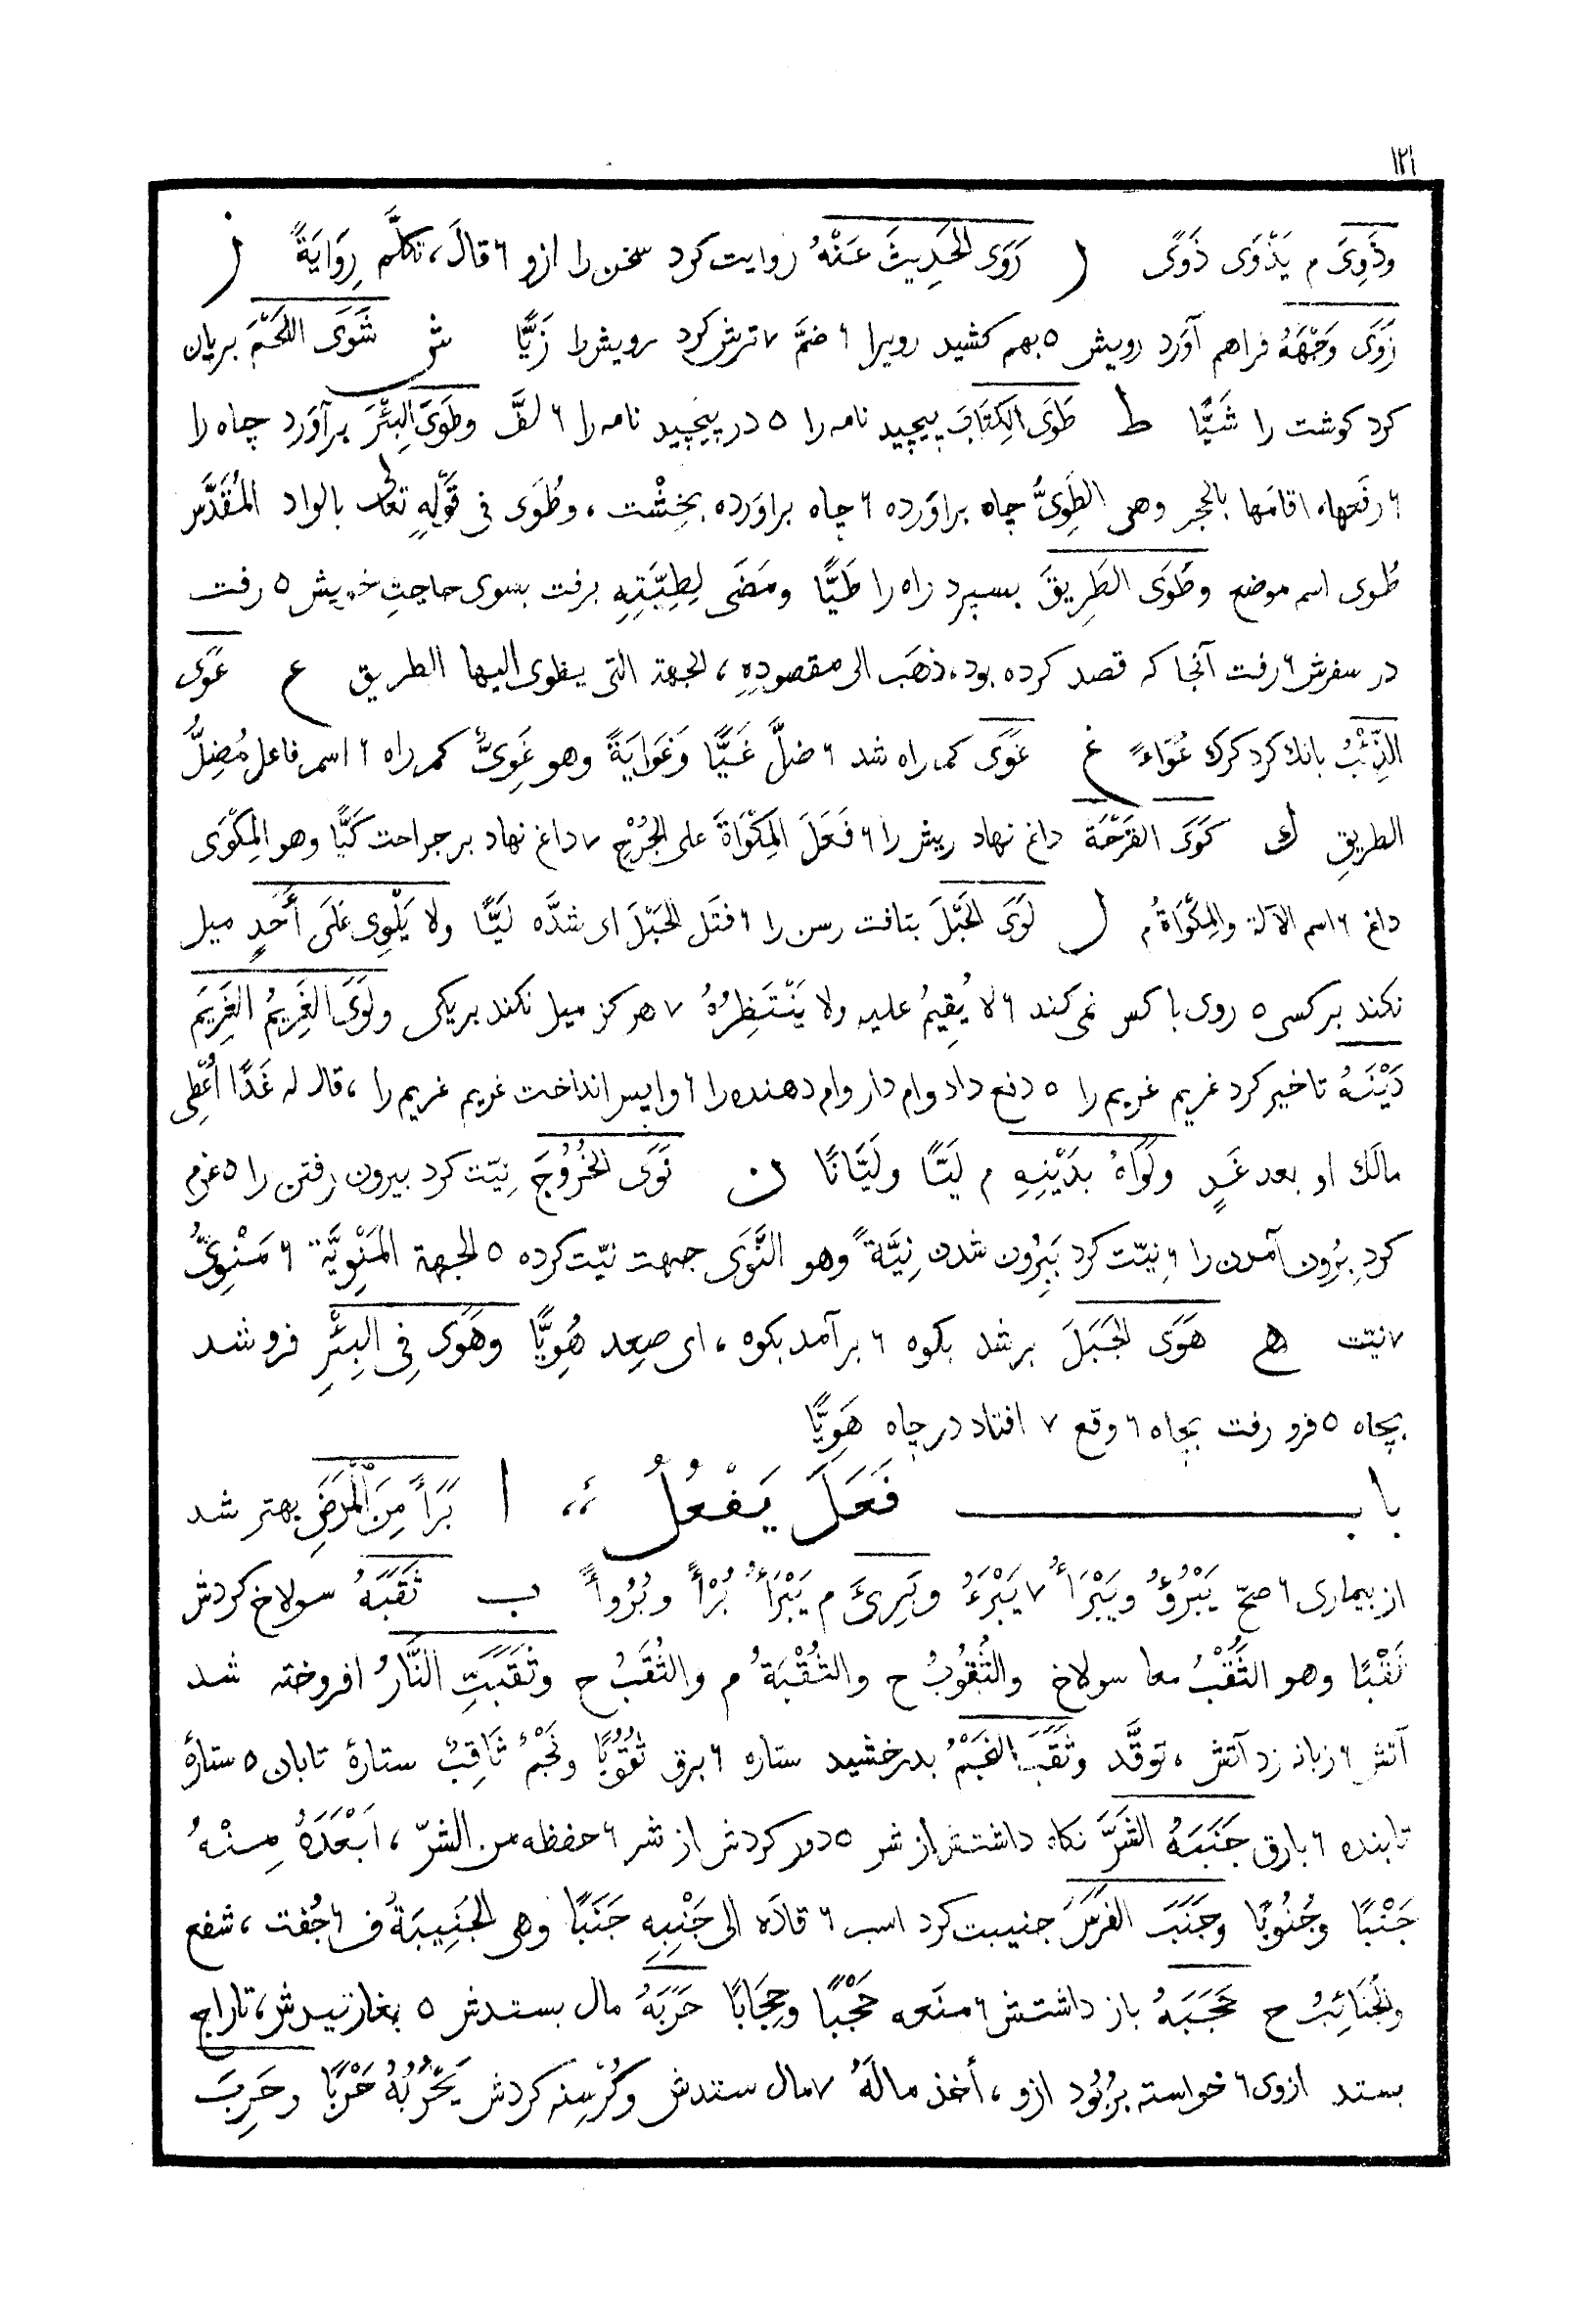 ١٢١
وذَوِیَ م یَذْوَی ذَوًی ر رَوَی الحَدِیثَ عَنْهُ روایت کرد سخن را ازو ۶ قالَ، تکلَّم رِوَایَةً ز
زَوَی وَجْهَهُ فراهم آوَرد رویش ۵ بهم کشید رویرا ۶ ضمَّ ۷ ترش کرد رویش را زَیًّا ش شَوَی اللَّحْمَ بریان
کرد کوشت را شَیًّا ط طَوَی الکِتَابَ پیچید نامه را ۵ در پیچید نامه را ۶ لفَّ وطَوَی البِئْرَ برآوَرد چاه را
۶ رفَعها، اقامَها بالحجر وهی الطَوِیُّ چاه براَورده ۶ چاه براوَرده بخِشْت، وطُوَی فی قَوْلِهِ تعالی بالواد المُقَدَّس
طُوی اسم موضع وطَوَی الطَرِیقَ بسپرد راه را طَیًّا ومَضَی لِطِیَّتِهِ برفت بسوی حاجتِ خویش ۵ رفت
در سفرش ۶ رفت آنجا که قصد کرده بود، ذهَب الی مقصودِهِ، الجهة التی یطوی الیها الطریق ع عَوَی
الذِّئْبُ بانك کرد کرك عُوَاءً غ غَوَی کم راه شد ۶ ضلَّ غَیًّا وَغَوَایَةً وهو غَوِیٌّ کم راه ۶ اسم فاعل مُضِلُّ
الطریقِ ك کَوَی القَرْحَةَ داغ نهاد ریش را ۶ فَعَلَ المِکْوَاةَ علی الجُرْحِ ۷ داغ نهاد بر جراحت کَیًّا وهو المِکْوَی
داغ ۶ اسم الآلة والمِکْوَاةُ م ل لَوَی الحَبْلَ بتافت رسن را ۶ فتَل الحَبْلَ ای شدَّه لَیًّا ولا یَلْوِی عَلَی أَحَدٍ میل
نکند بر کسی ۵ روی با کس نمی کند ۶ لا یُقِیمُ علیه ولا یَنْتَظِرُهُ ۷ هرکز میل نکند بر یکی ولَوَی الغَرِیمُ الغَرِیمَ
دَیْنَهُ تاخیر کرد غریم غریم را ۵ دفع داد وام دار وام دهنده را ۶ واپس انداخت غریم غریم را، قال له غَدًا اُعْطِی
مالَك او بعد غَدٍ ولَوَاهُ بدَیْنِهِ م لَیًّا ولَیَّانًا ن نَوَی الخُرُوجَ نِیّت کرد بیرون رفتن را ۵ عزم
کرد بِرُون آمدن را ۶ نِیّت کرد بَیِرُون شدن نِیَّةً وهو النَّوَی جهت نیّت کرده ۵ الجهة المَنْوِیَّة ۶ مَنْوِیٌّ
۷ نیّت ه هَوَی الجَبَلَ بر شد بکوه ۶ بر آمد بکوه، ای صعِد هُوِیًّا وهَوَی فِی البِئْرِ فرو شد
بچاه ۵ فرو رفت بچاه ۶ وقع ۷ افتاد در چاه هَوِیًّا
باب فَعَلَ یَفْعُلُ ،، ا بَرَأَ مِنَ المَرَضِ بهتر شد
از بیماری ۶ صحّ یَبْرُؤُ ویَبْرَأُ ۷ یَبْرَءُ وبَرِئَ م یَبْرَأُ بُرْأً وبُرُواً ب ثَقَبَهُ سولاخ کردش
ثَقْبًا وهو الثَقْبُ معا سولاخ والثُقُوبُ ح والثُقْبَةُ م والثُقَبُ ح وثَقَبَتِ النَّارُ افروخته شد
آتش ۶ زبانه زد آتش، توقَّد وثَقَبَ النَجْمُ بدرخشید ستاره ۶ برق ثُقُوبًا ونَجْمٌ ثَاقِبٌ ستارهٔ تابان ۵ ستارهٔ
تابنده ۶ بارق جَنَبَهُ الشَرَّ نکاه داشتش از شر ۵ دور کردش از شر ۶ حفظه من الشرّ، اَبْعَدَهُ مِنْهُ
جَنْبًا وجُنُوبًا وجَنَبَ الفَرَسَ جنیبت کرد اسب ۶ قادَه الی جَنْبِهِ جَنَبًا وهی الجَنِیبَةُ ف ۶ جُفت، شفع
والجَنَائِبُ ح حَجَبَهُ باز داشتش ۶ منَعه حَجْبًا وحِجَابًا حَرَبَهُ مال بستدش ۵ بغارتیدش، تاراج
بستد ازوی ۶ خواسته برُبُود ازو، أخذ مالَهُ ۷ مال ستدش وکُرْسِنه کردش یَحْرُبُهُ حَرْبًا وحَرِبَ